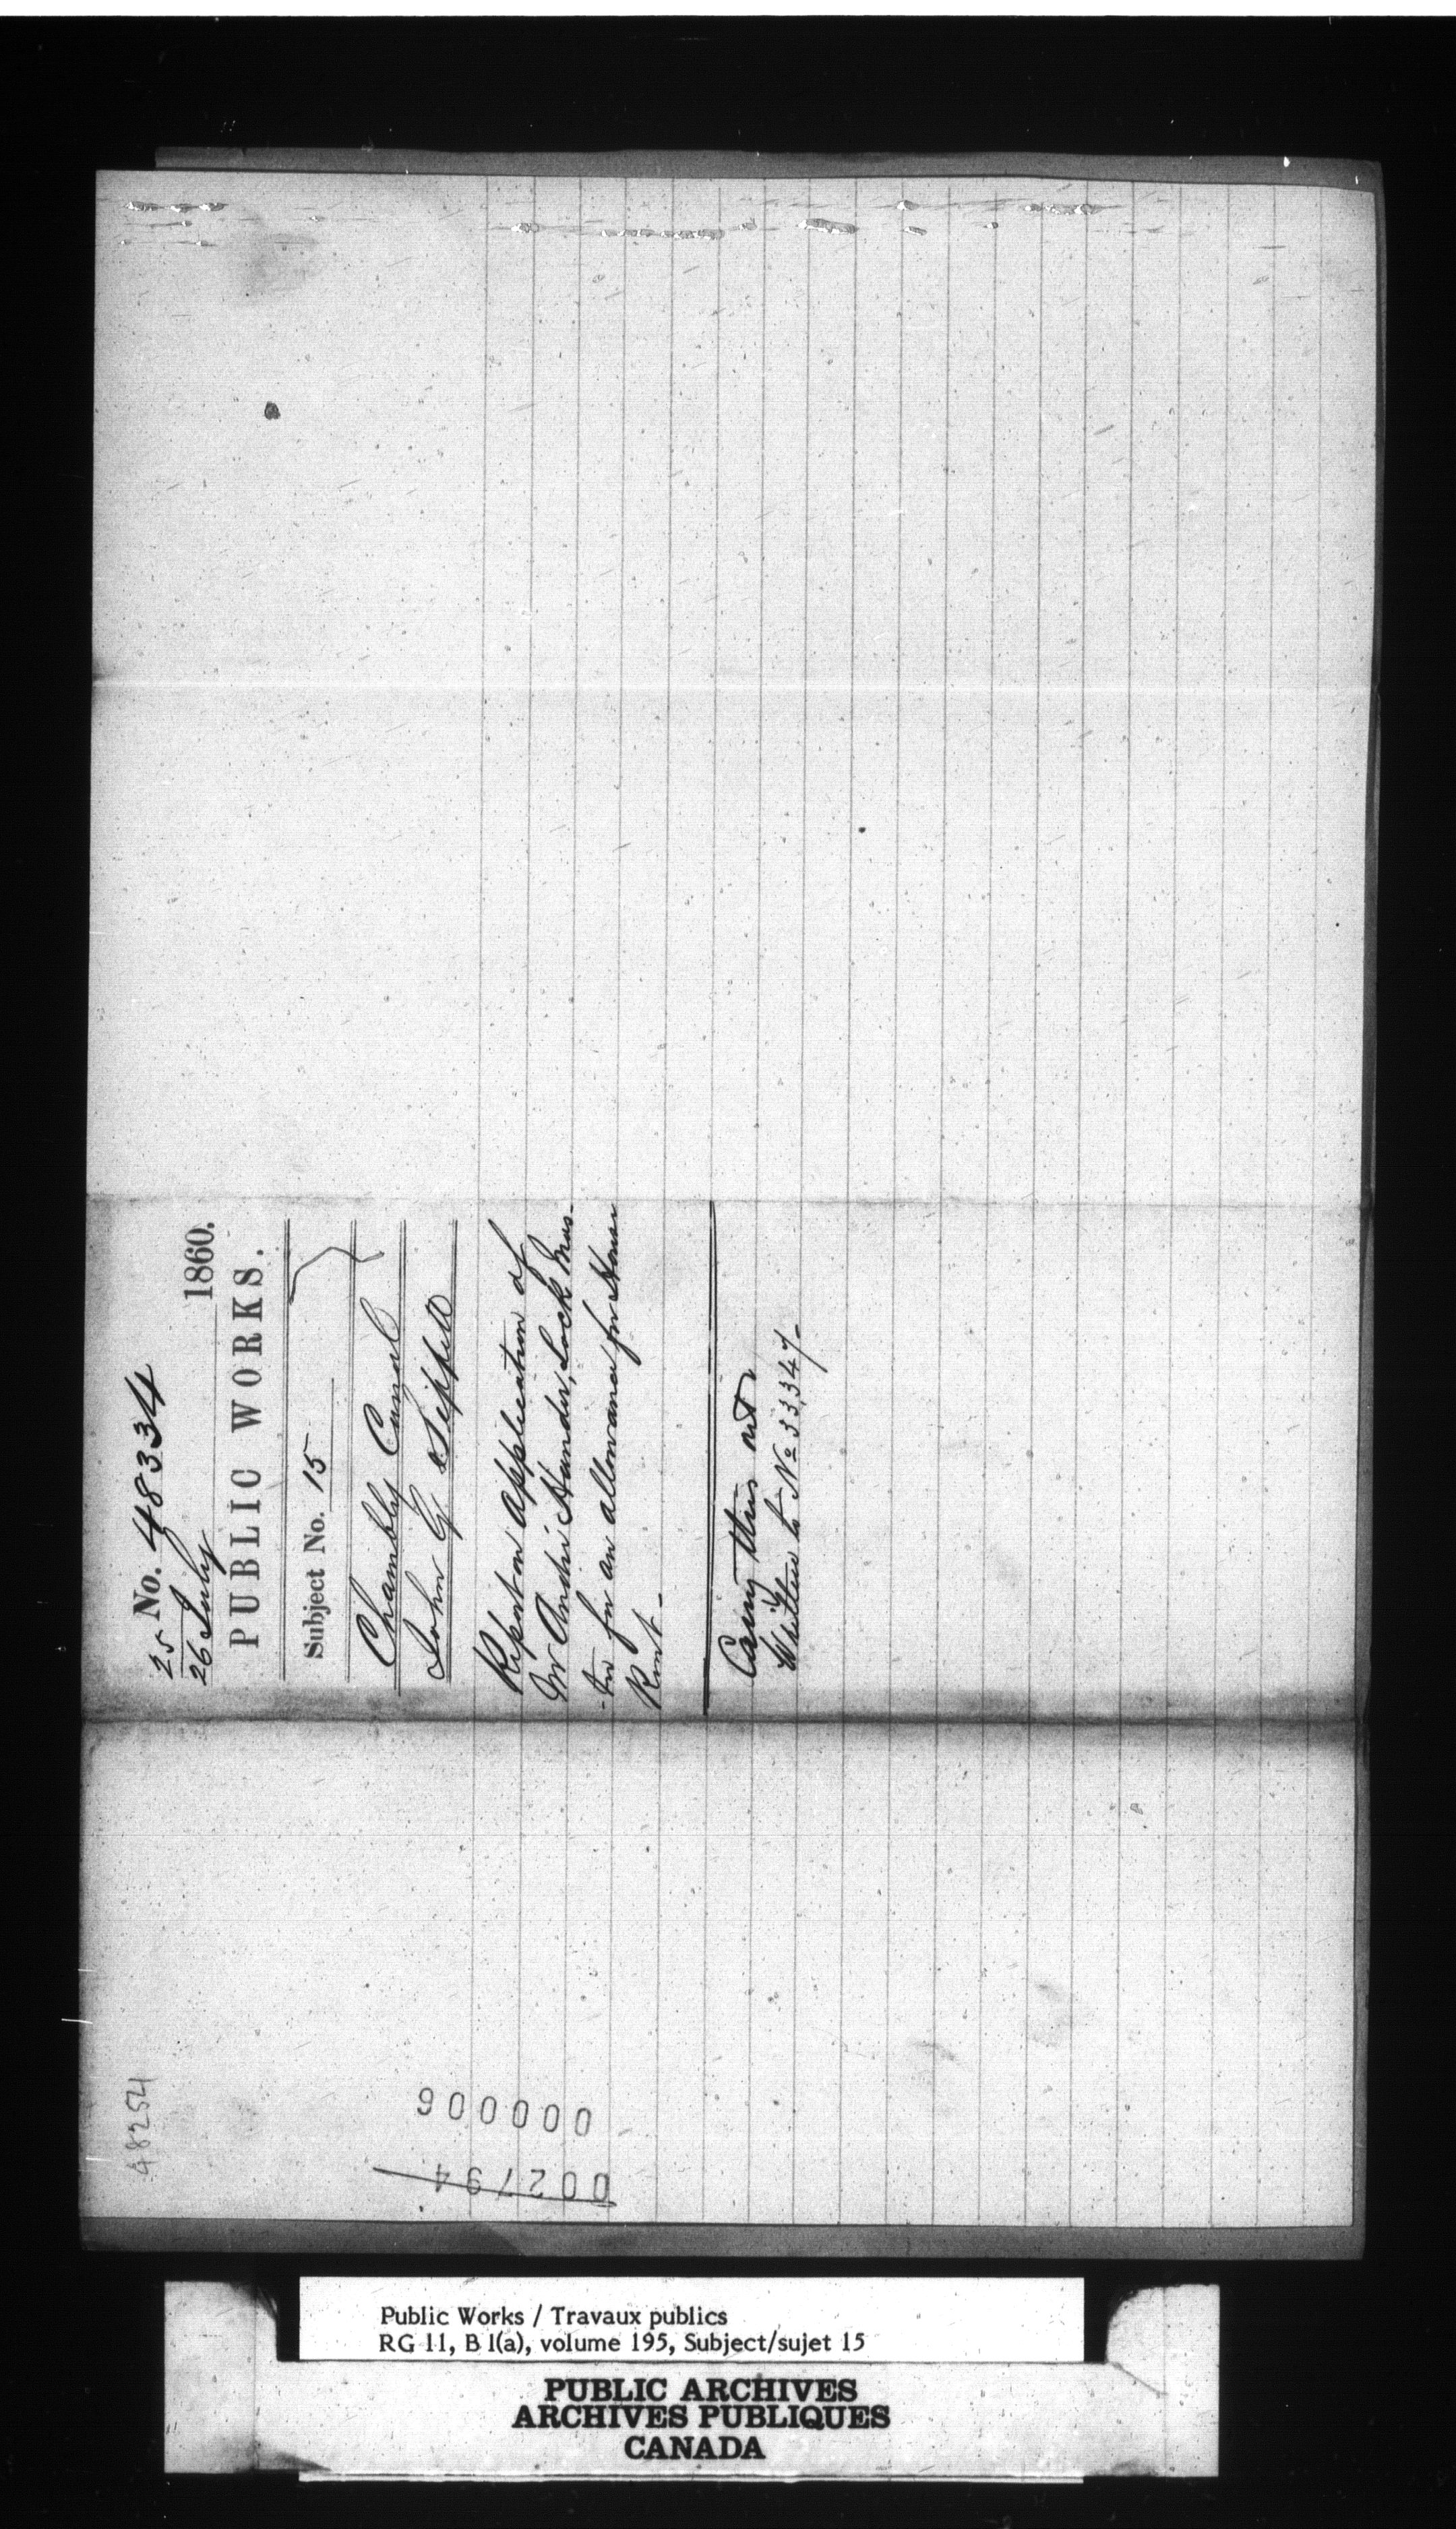 No. 48334
25
26 July 1860.
PUBLIC WORKS.
Subject No. 15
Chambly Canal
John G Sippell
Report on Application of
Mr André Lock Mas-
-ter for an allowance for House
Rent -
Carry this out
Written to No 33,347-
48254
000006
002794
Public Works / Travaux publics
RG 11, B 1(a), volume 195, Subject/sujet 15
PUBLIC ARCHIVES
ARCHIVES PUBLIQUES
CANADA